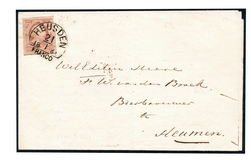 HEUSDEN
21
FRANCO
WelEdelen Heere
F. W. van den Broek
Bierbrouwer
te
Heumen.